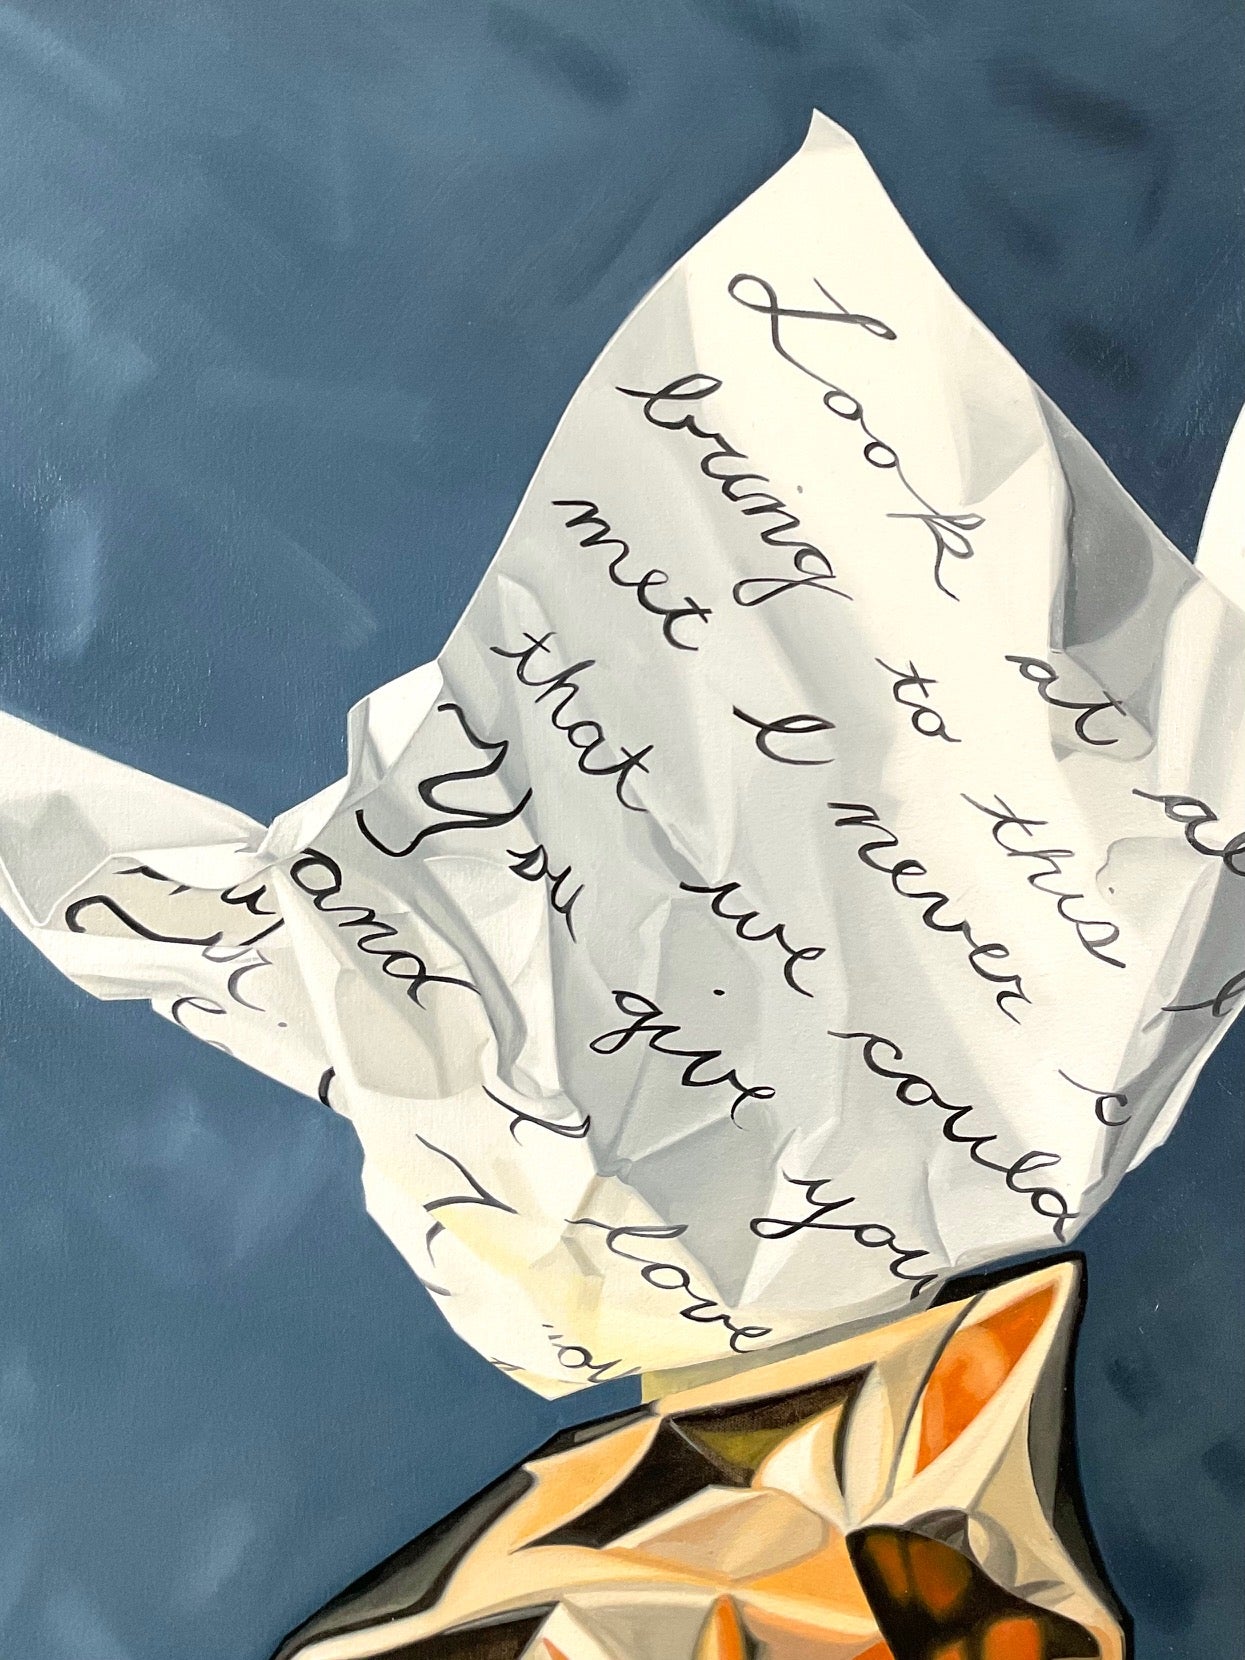 Look at al
bring to this
met I never c
that we could
You give you
and I love